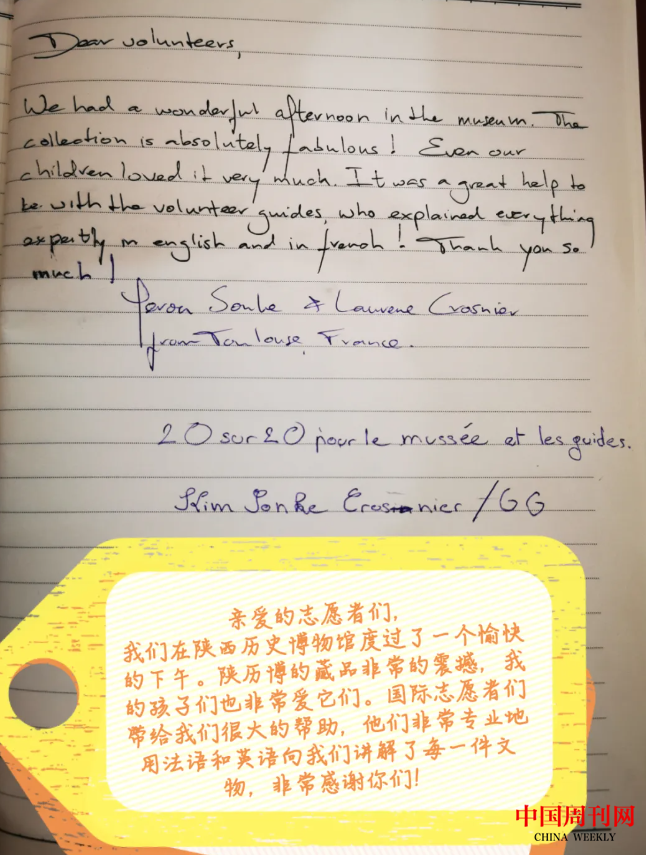 Dear volunteers,
We had a wonderful afternoon in the museum. The
collection is absolutely fabulous! Even our
children loved it very much. It was a great help to
be with the volunteer guides, who explained everything
expertly in english and in french! Thank you so
much!
Sonke & Laurene Crosnier
from Toulouse, France.
20 sur 20 pour le mussée et les guides.
Kim Sonke Crosnier / GG
亲爱的志愿者们，
我们在陕西历史博物馆度过了一个愉快
的下午。陕历博的藏品非常的震撼，我
的孩子们也非常爱它们。国际志愿者们
带给我们很大的帮助，他们非常专业地
用法语和英语向我们讲解了每一件文
物，非常感谢你们！
中国周刊网
CHINA WEEKLY